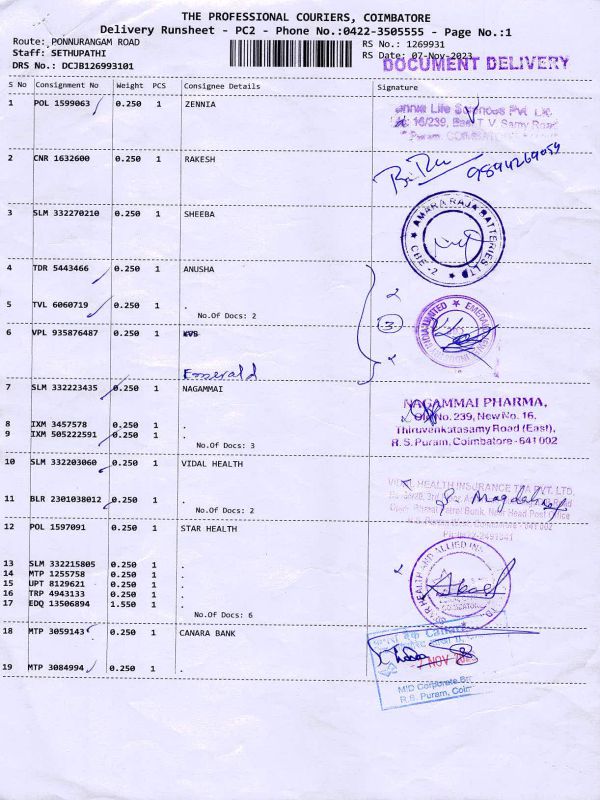 THE PROFESSIONAL COURIERS, COIMBATORE
Delivery Runsheet - PC2 - Phone No.:0422-3505555 - Page No.:1
Route: PONNURANGAM ROAD
Staff: SETHUPATHI
DRS No.: DCJB126993101
RS No.: 1269931
RS Date: 07-Nov-2023
DOCUMENT DELIVERY
S No Consignment No Weight PCS Consignee Details Signature
1 POL 1599063 0.250 1 ZENNIA
ennia Life Sciences Pvt. Ltd.
16/239, East T.V. Samy Road
Puram, COIMBATORE
2 CNR 1632600 0.250 1 RAKESH
9894269059
3 SLM 332270210 0.250 1 SHEEBA
AMARA RAJA BATTERIES LTD
CBE-2
4 TDR 5443466 0.250 1 ANUSHA
5 TVL 6060719 0.250 1 .
No.Of Docs: 2
3
6 VPL 935876487 0.250 1 KVS
Emerald
7 SLM 332223435 0.250 1 NAGAMMAI
NAGAMMAI PHARMA,
Old No. 239, New No. 16,
Thiruvenkatasamy Road (East),
R.S. Puram, Coimbatore - 641 002
8 IXM 3457578 0.250 1 .
9 IXM 505222591 0.250 1 .
No.Of Docs: 3
10 SLM 332203060 0.250 1 VIDAL HEALTH
VIDAL HEALTH INSURANCE TPA PVT. LTD.
11 BLR 2301038012 0.250 1 .
No.Of Docs: 2
12 POL 1597091 0.250 1 STAR HEALTH
STAR HEALTH AND ALLIED INS
COIMBATORE
13 SLM 332215805 0.250 1 .
14 MTP 1255758 0.250 1 .
15 UPT 8129621 0.250 1 .
16 TRP 4943133 0.250 1 .
17 EDQ 13506894 1.550 1 .
No.Of Docs: 6
18 MTP 3059143 0.250 1 CANARA BANK
NOV
MID Corporate
R.S. Puram, Coim
19 MTP 3084994 0.250 1 .